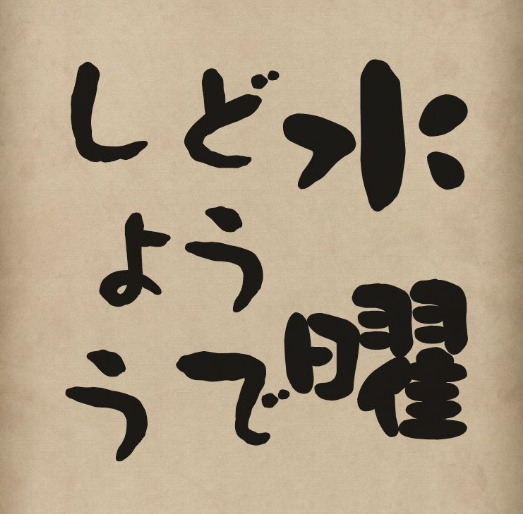 水曜
どうで
しょう